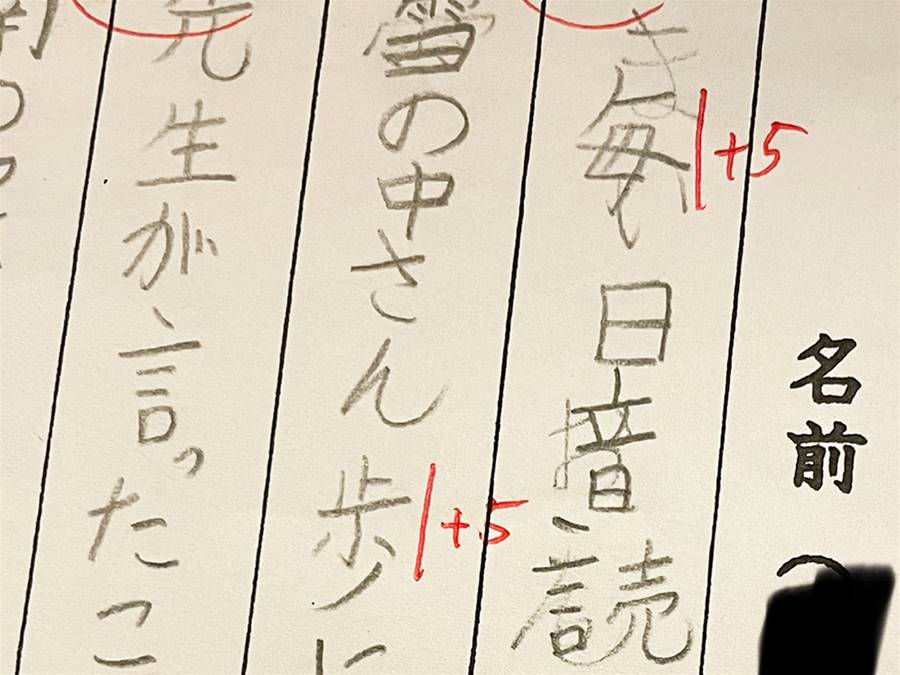 名前（
毎日音読
+5
雪の中さんぽに
+5
先生が言ったこ